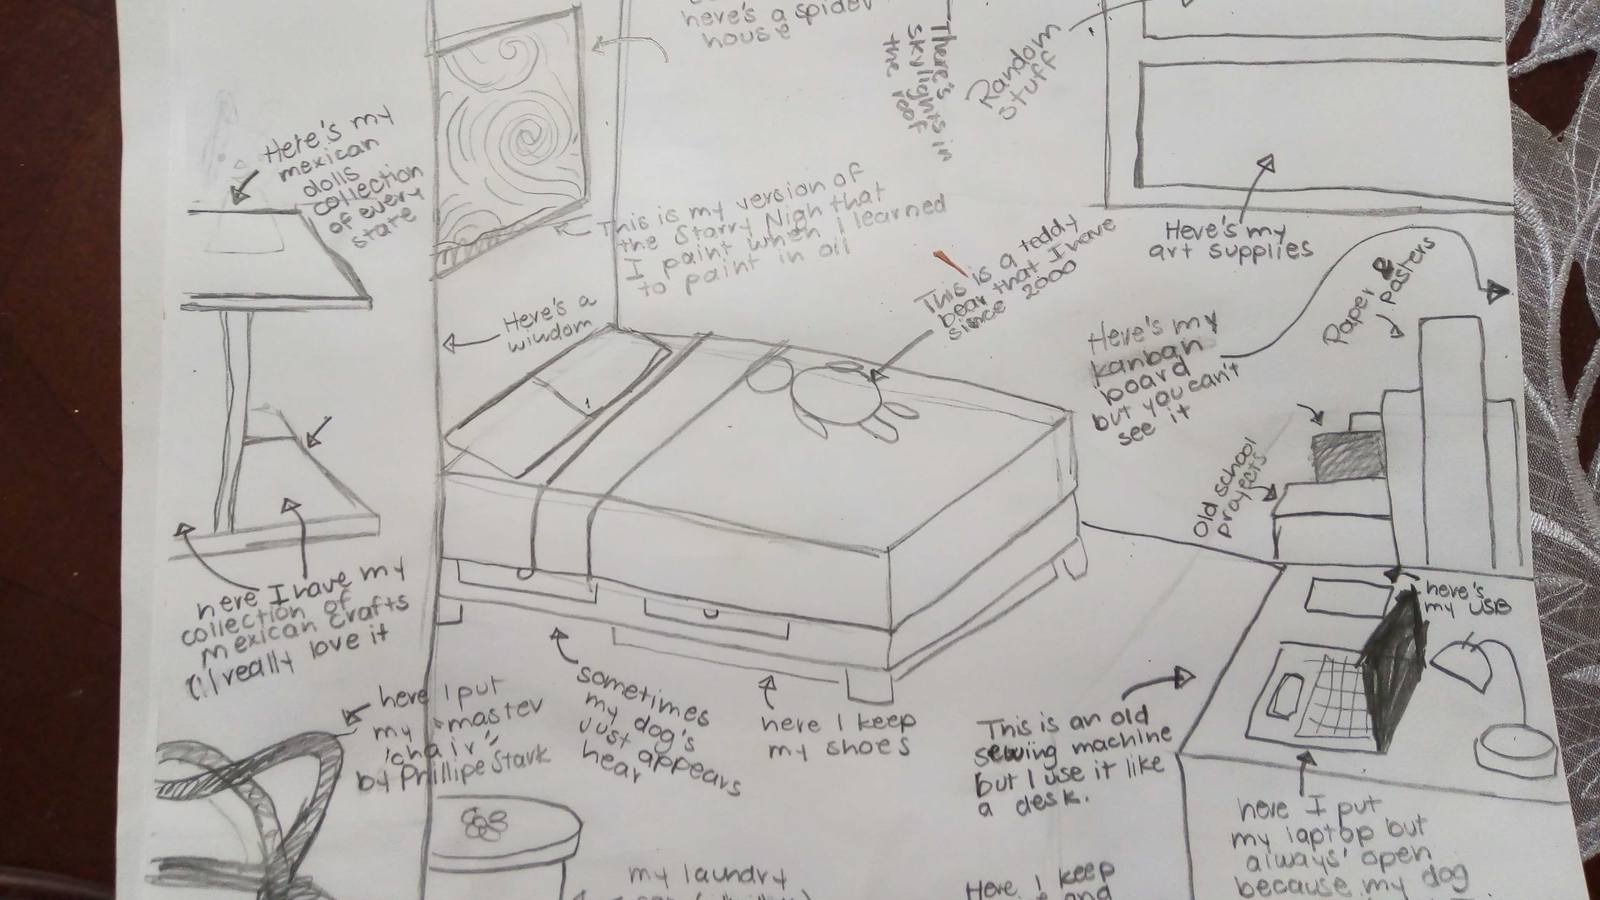 here's a spider
house
There's
skylights in
the roof
Random
stuff
Here's my
mexican
dolls
collection
of every
state
This is my version of
the Starry Nigh that
I paint when I learned
to paint in oil
Here's my
art supplies
This is a teddy
bear that I have
since 2000
Here's a
window
Here's my
kanban
board
but you can't
see it
Paper &
posters
Old school
proyects
here I have my
collection of
mexican crafts
I really love it
here's
my USB
here I put
my "master
chair"
by Phillipe Stark
sometimes
my dog's
just appears
hear
here I keep
my shoes
This is an old
sewing machine
but I use it like
a desk.
here I put
my laptop but
always' open
because my dog
my laundry
Here I keep
and